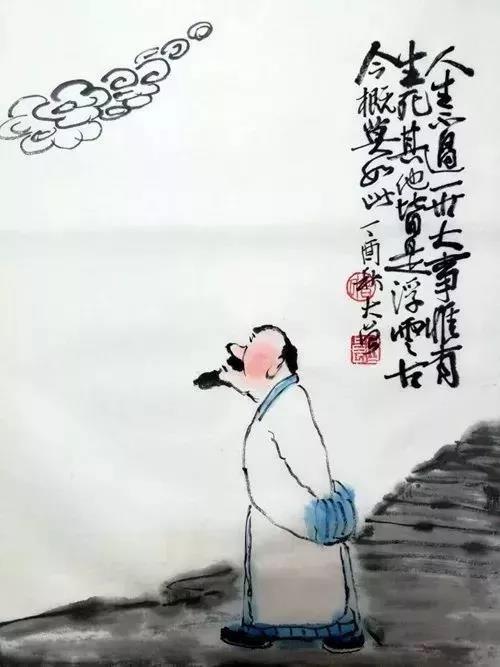 人生不過一世大事惟有
生死其他皆是浮雲古
今概莫如此 丁酉秋大